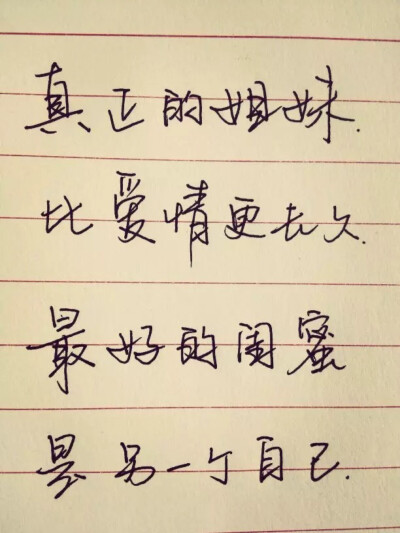 真正的姐妹.
比爱情更长久.
最好的闺蜜
是另一个自己.